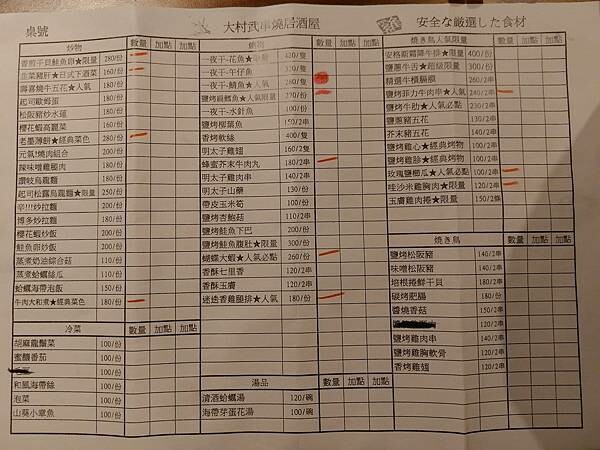 桌號
大村武串燒居酒屋
安全な厳選した食材
炒物 數量 加點 加點
香煎干貝鮭魚卵★限量 280/份
韭菜豬肝★日式下酒菜 160/份
壽喜燒牛五花★人氣 180/份
起司歐姆蛋 200/份
松阪豬炒水蓮 180/份
櫻花蝦高麗菜 160/份
老墨薄餅★經典菜色 280/份
元氣!燒肉組合 200/份
辣味噌雞腿肉 180/份
讚岐烏龍麵 180/份
起司松露烏龍麵★限量 250/份
辛!!!炒拉麵 180/份
博多炒拉麵 180/份
櫻花蝦炒飯 150/份
鮭魚卵炒飯 200/份
蒸煮奶油綜合菇 110/份
蒸煮蛤蠣絲瓜 110/份
蛤蠣海帶泡飯 150/份
牛肉大和煮★經典菜色 180/份
冷菜 數量 加點 加點
胡麻龍鬚菜 100/份
蜜釀番茄 100/份
100/份
和風海帶絲 100/份
泡菜 100/份
山葵小章魚 100/份
燒物 數量 加點 加點
一夜干-花魚★ 420/隻
一夜干-午仔魚 320/隻
一夜干-鯖魚★人氣
鹽烤緞鱈魚★人氣限定
一夜干-水針魚 100/份
鹽烤柳葉魚 150/份
香烤軟絲 400/隻
明太子雞翅 160/2隻
蜂蜜芥末牛肉丸 180/2串
明太子雞肉串 140/2串
明太子山藥 130/份
帶皮玉米筍 100/份
鹽烤杏鮑菇 110/2串
鹽烤鮭魚下巴 200/份
鹽烤鮭魚腹肚★限量 300/份
蝴蝶大蝦★人氣必點 260/份
香酥七里香 120/2串
香酥玉膚 120/2串
迷迭香雞腿排★人氣 180/份
湯品 數量 加點 加點
清酒蛤蠣湯 120/碗
海帶芽蛋花湯 100/碗
燒き鳥人氣限量 數量 加點 加點
安格斯霜降牛排★限量 400/份
鹽蔥牛舌★超級限量 300/份
精選牛橫膈膜 260/2串
鹽烤菲力牛肉串★人氣 240/2串
鹽烤牛肋★人氣必點 230/2串
鹽蔥豬五花 130/2串
芥末豬五花 140/2串
鹽烤雞心★經典烤物 100/2串
鹽烤雞胗★經典烤物 100/2串
玫瑰鹽櫛瓜★人氣必點 100/2串
哇沙米雞胸肉★限量 120/2串
玉膚雞肉捲★限量 150/2條
燒き鳥 數量 加點 加點
鹽烤松阪豬 140/2串
味噌松阪豬 140/2串
培根捲鮮干貝 180/2串
碳烤肥腸 180/份
醬燒香菇 150/2串
120/2串
鹽烤雞肉串 140/2串
鹽烤雞胸軟骨 140/2串
香烤雞翅 120/2串